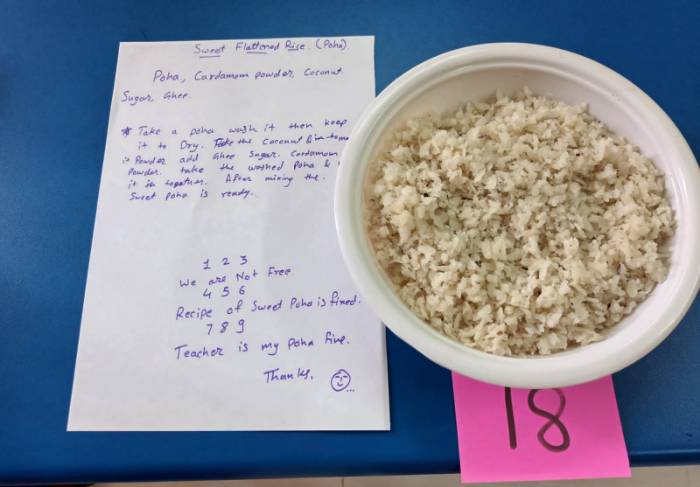 Sweet Flattened Rise. (Poha)
Poha, Cardamom powder, Coconut
Sugar, Ghee.
* Take a poha wash it then keep
it to Dry. Take the Coconut
Powder add Ghee Sugar. Cardamom
Powder. take the washed Poha &
it in together. After mixing the.
Sweet Poha is ready.
1 2 3
We are Not Free
4 5 6
Recipe of Sweet Poha is fixed.
7 8 9
Teacher is my Poha Five.
Thanks.
18